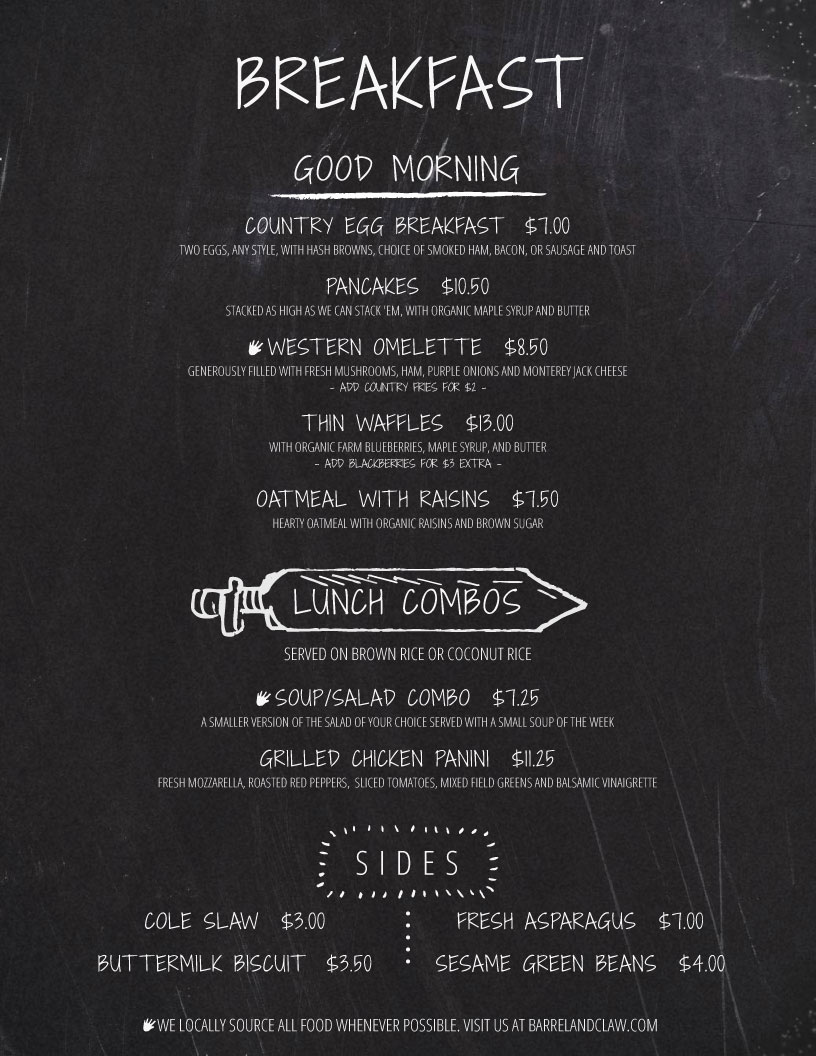 BREAKFAST
GOOD MORNING
COUNTRY EGG BREAKFAST $7.00
TWO EGGS, ANY STYLE, WITH HASH BROWNS, CHOICE OF SMOKED HAM, BACON, OR SAUSAGE AND TOAST
PANCAKES $10.50
STACKED AS HIGH AS WE CAN STACK 'EM, WITH ORGANIC MAPLE SYRUP AND BUTTER
WESTERN OMELETTE $8.50
GENEROUSLY FILLED WITH FRESH MUSHROOMS, HAM, PURPLE ONIONS AND MONTEREY JACK CHEESE
- ADD COUNTRY FRIES FOR $2 -
THIN WAFFLES $13.00
WITH ORGANIC FARM BLUEBERRIES, MAPLE SYRUP, AND BUTTER
- ADD BLACKBERRIES FOR $3 EXTRA -
OATMEAL WITH RAISINS $7.50
HEARTY OATMEAL WITH ORGANIC RAISINS AND BROWN SUGAR
LUNCH COMBOS
SERVED ON BROWN RICE OR COCONUT RICE
SOUP/SALAD COMBO $7.25
A SMALLER VERSION OF THE SALAD OF YOUR CHOICE SERVED WITH A SMALL SOUP OF THE WEEK
GRILLED CHICKEN PANINI $11.25
FRESH MOZZARELLA, ROASTED RED PEPPERS, SLICED TOMATOES, MIXED FIELD GREENS AND BALSAMIC VINAIGRETTE
SIDES
COLE SLAW $3.00
BUTTERMILK BISCUIT $3.50
FRESH ASPARAGUS $7.00
SESAME GREEN BEANS $4.00
WE LOCALLY SOURCE ALL FOOD WHENEVER POSSIBLE. VISIT US AT BARRELANDCLAW.COM